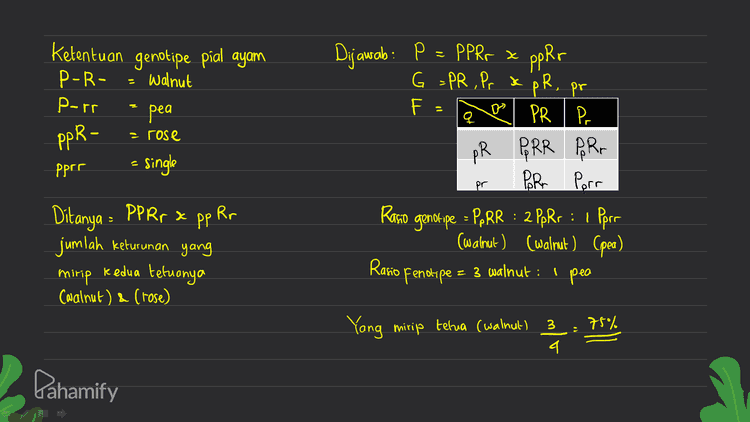 Ketentuan genotipe pial ayam
P-R- = walnut
P-rr = pea
ppR- = rose
pprr = single
Ditanya = PPRr x pp Rr
jumlah keturunan yang
mirip kedua tetuanya
(walnut) & (rose)
Dijawab : P = PPRr x ppRr
G = PR, Pr x pR, pr
F =
♀ ♂ PR Pr
pR PpRR PpRr
pr PpRr Pprr
Rasio genotipe = PpRR : 2 PpRr : 1 Pprr
(walnut) (walnut) (pea)
Rasio Fenotipe = 3 walnut : 1 pea
Yang mirip tetua (walnut) 3/4 = 75%
Pahamify